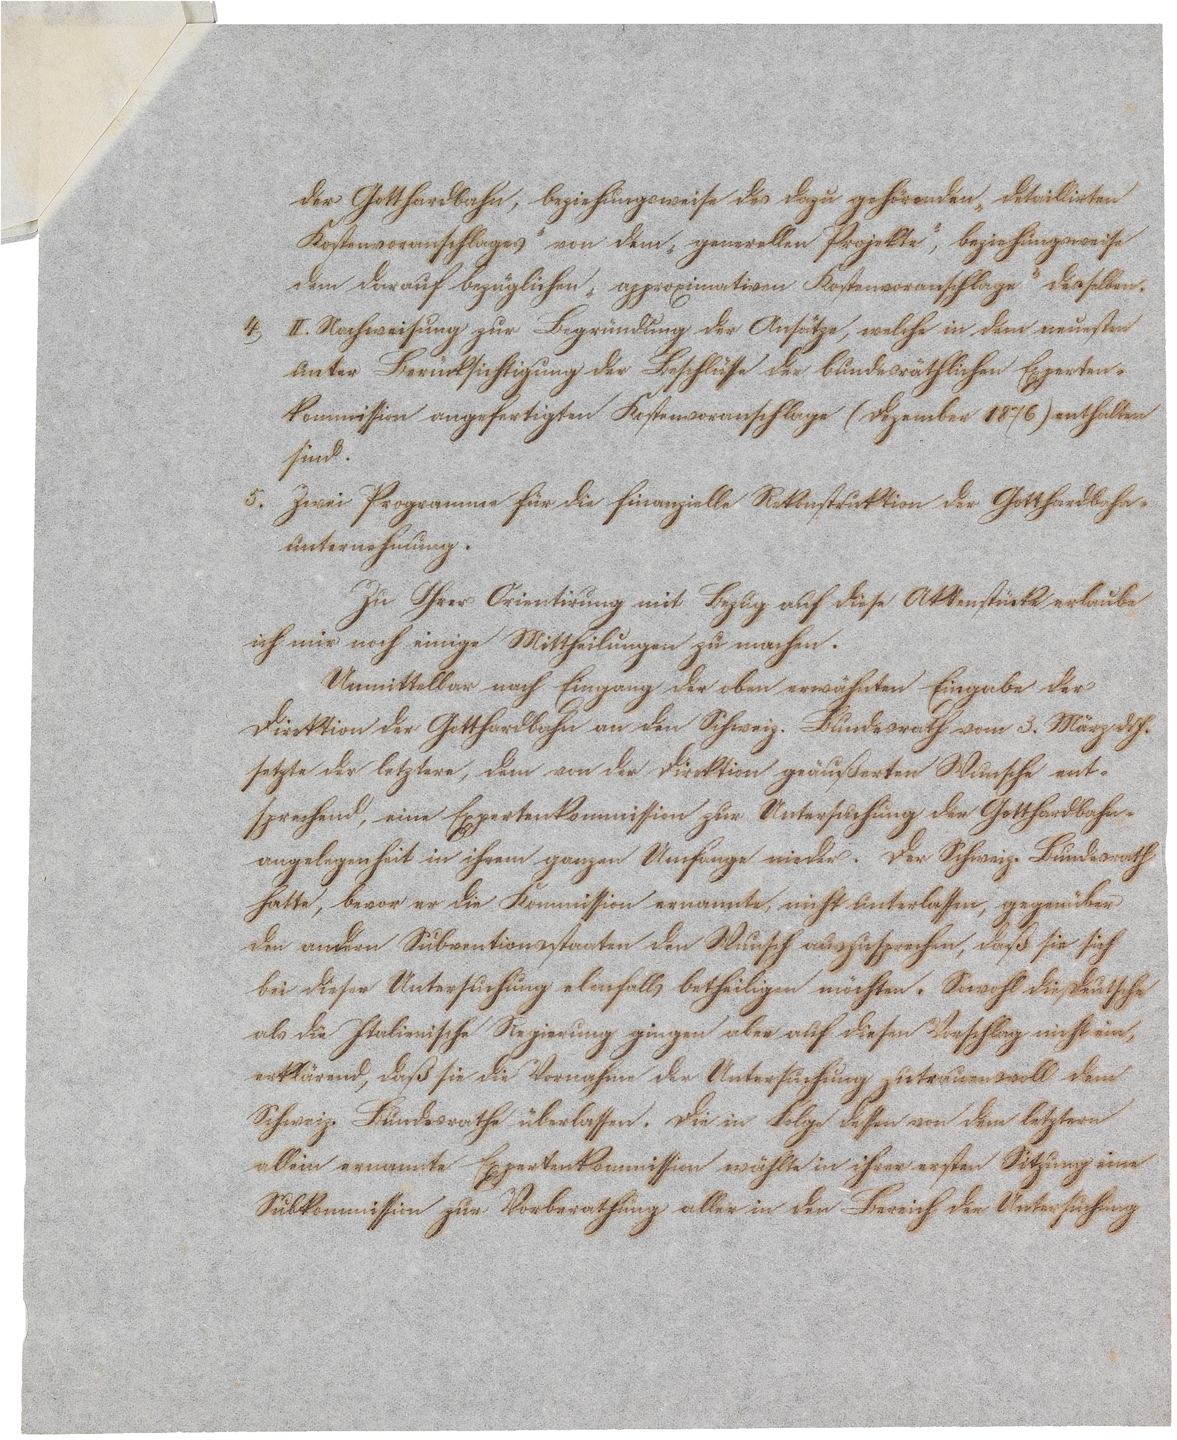 der Gotthardbahn, beziehungsweise des dazu gehörenden „detaillirten
Kostenvoranschlages“ von dem „generellen Projekte“, beziehungsweise
dem darauf bezüglichen „approximativen Kostenvoranschlage“ desselben.
4. II. Nachweisung zur Begründung der Ansätze, welche in dem neuesten
unter Berücksichtigung der Beschlüsse der bundesräthlichen Experten-
kommission angefertigten Kostenvoranschlage (Dezember 1876) enthalten
sind.
5. Zwei Programme für die finanzielle Rekonstruktion der Gotthardbahn-
unternehmung.
Zu Ihrer Orientirung mit Bezug auf diese Aktenstücke erlaube
ich mir noch einige Mittheilungen zu machen.
Unmittelbar nach Eingang der oben erwähnten Eingabe der
Direktion der Gotthardbahn an den Schweiz. Bundesrath vom 3. März dß.
setzte der letztere, dem von der Direktion geäußerten Wunsche ent-
sprechend, eine Expertenkommission zur Untersuchung der Gotthardbahn-
angelegenheit in ihrem ganzen Umfange nieder. Der Schweiz. Bundesrath
hatte, bevor er die Kommission ernannte, nicht unterlassen, gegenüber
den andern Subventionsstaaten den Wunsch auszusprechen, daß sie sich
bei dieser Untersuchung ebenfalls betheiligen möchten. Sowohl die Deutsche
als die Italienische Regierung gingen aber auf diesen Vorschlag nicht ein,
erklärend, daß sie die Vornahme der Untersuchung zutrauensvoll dem
Schweiz. Bundesrathe überlassen. Die in Folge dessen von dem letztern
allein ernannte Expertenkommission wählte in ihrer ersten Sitzung eine
Subkommission zur Vorberathung aller in den Bereich der Untersuchung